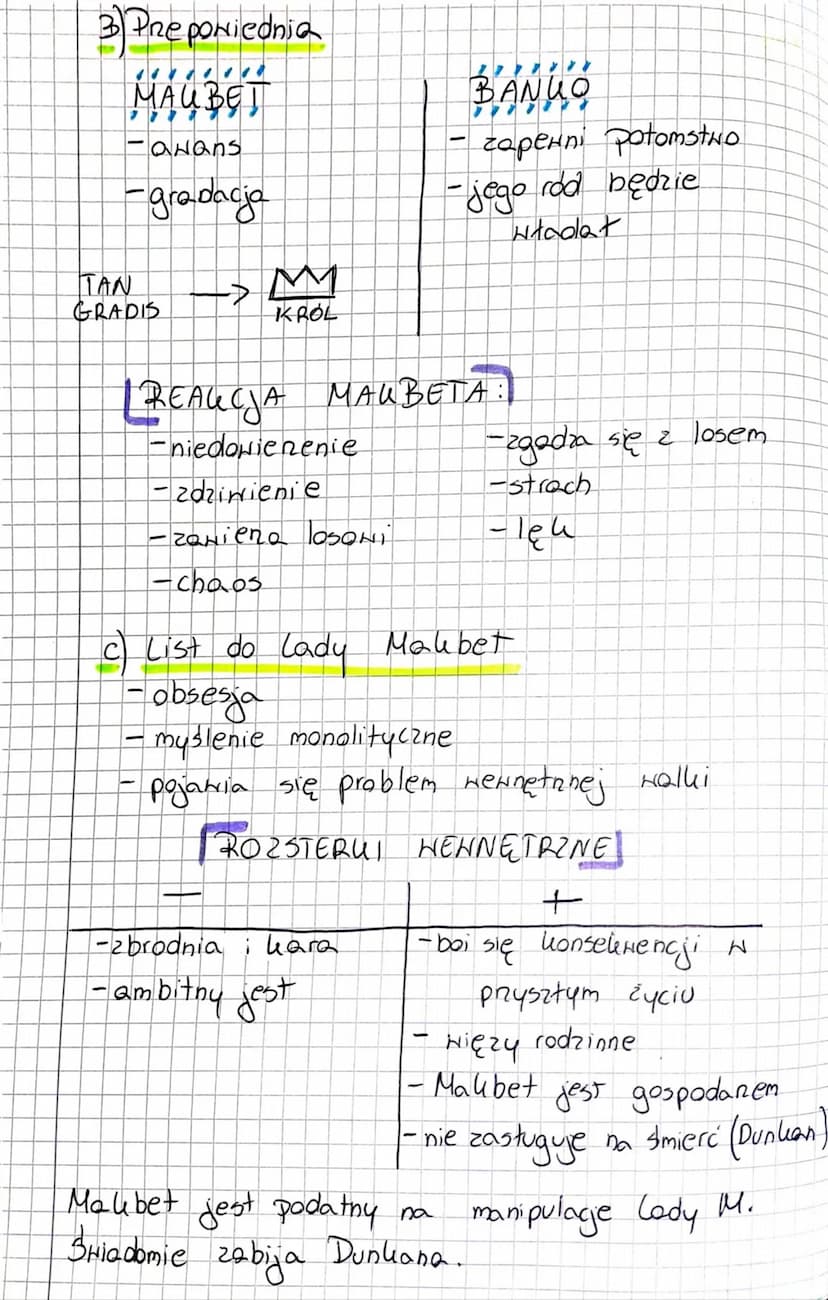 3) Przepowiednia
MAKBET
- awans
- gradacja
BANKO
- zapewni potomstwo
- jego ród będzie
władał
TAN
GRADIS → KRÓL
REAKCJA MAKBETA:
- niedowierzenie
- zdziwienie
- zawierza losowi
- chaos
- zgadza się z losem
- strach
- lęk
c) List do Lady Makbet
- obsesja
- myślenie monolityczne
- pojawia się problem wewnętrznej walki
ROZSTERKI WEWNĘTRZNE
—
- zbrodnia i kara
- ambitny jest
+
- boi się konsekwencji w
przyszłym życiu
- więzy rodzinne
- Makbet jest gospodarzem
- nie zasługuje na śmierć (Dunkan)
Makbet jest podatny na manipulacje Lady M.
Świadomie zabija Dunkana.